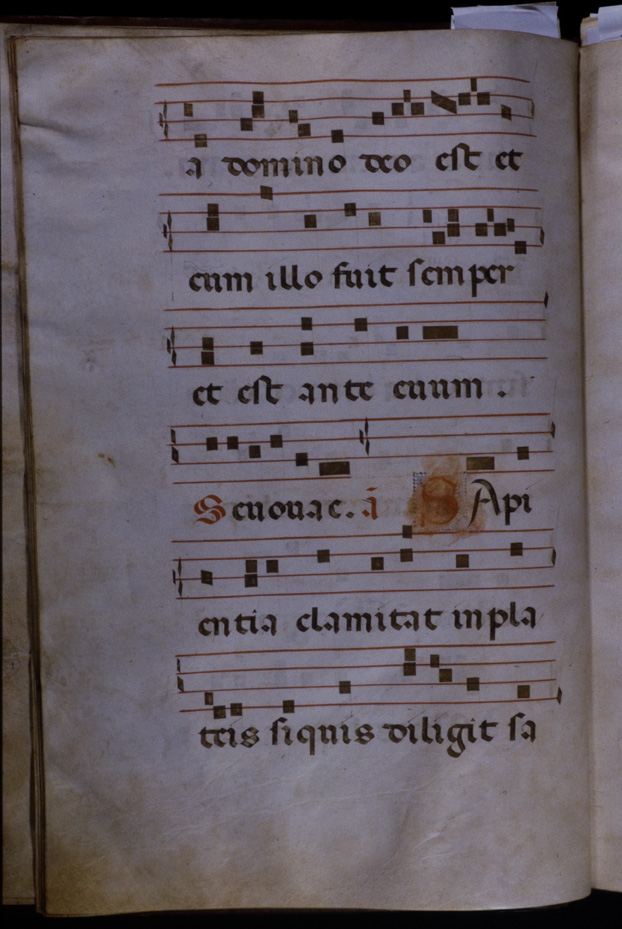 a domino deo est et
cum illo fuit semper
et est ante euum .
Seuouae. a̅ SApi
entia clamitat inpla
teis siquis diligit sa